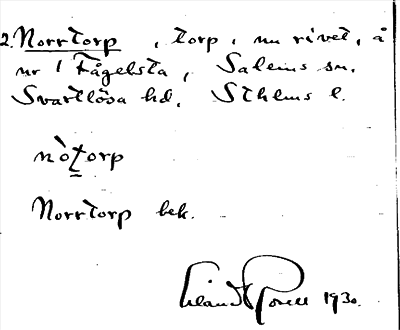 2. Norrtorp, torp, nu rivet, å
nr 1 Fågelsta, Salems sn.
Svartlösa hd. Sthlms l.
nòtorp
Norrtorp bek.
1930.